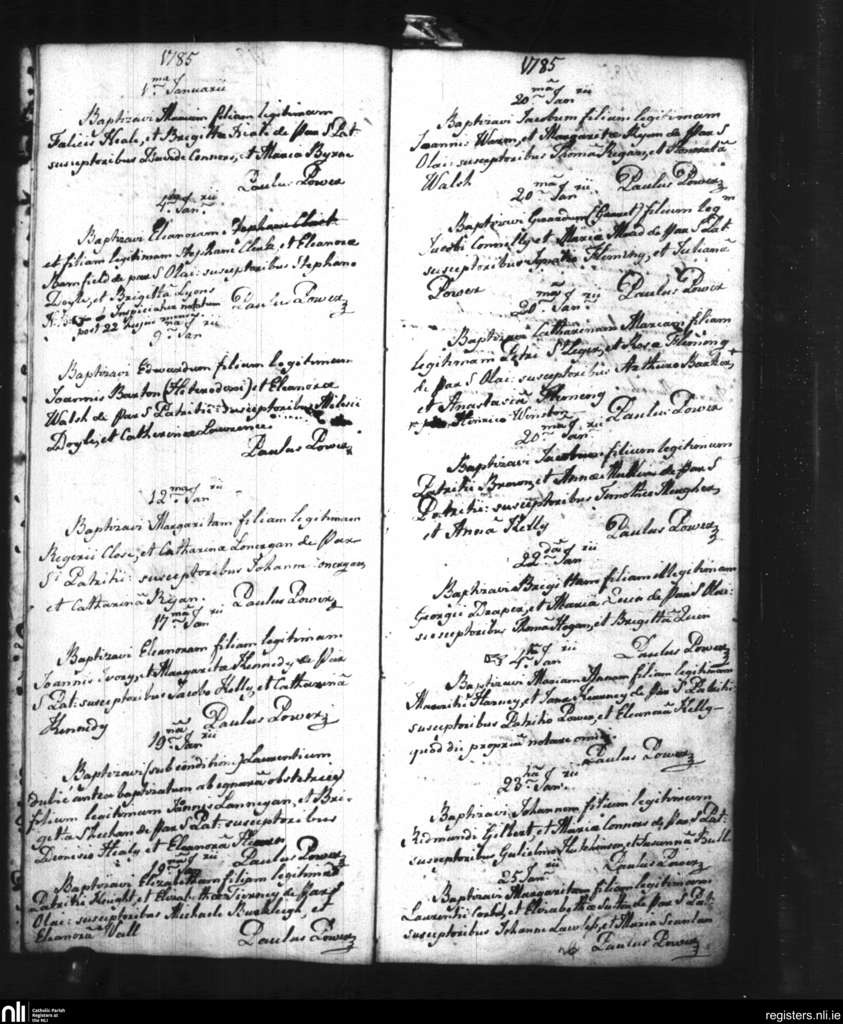 1785
1ma Januarii
Baptizavi Mariam filiam legitimam
Felicis Heale, et Brigitta Heale de Par S Pat
susceptoribus Connors, et Maria Byrne
Paulus Power
4ta Janrii
Baptizavi Eleanoram Stephani Clark
et filiam legitimam Stephani Clark, et Eleanora
Barnfield de par S Olai: susceptoribus Stephano
Doyle, et Brigittâ Lyons
Paulus Power
post 22 hujus mensis
9na Janrii
Baptizavi Edwardum filium legitimum
Joannis Barton (Heterodoxi) et Eleanora
Walsh de Par S Patritii: susceptoribus
Doyle, et Catherina Lawrence
Paulus Power
12ma Janrii
Baptizavi Margaritam filiam legitimam
Rogerii Close, et Catharina Lonergan de Par
S Patritii: susceptoribus Johanne
et Catharinâ Ryan. Paulus Power
17ma Janrii
Baptizavi Eleanoram filiam legitimam
Joannis Ivory, et Margarita Kennedy de Par
S Pat: susceptoribus Jacobo Kelly, et Catharinâ
Kennedy Paulus Power
19na Janrii
Baptizavi (sub conditione) Laurentium
dubiè antea baptizatum ab ignarâ obstetrice
filium legitimum Lannegan, et Bri-
getta Sheehan de Par S Pat: susceptoribus
Dionisio Healy et Eleanorâ
19na Janrii Paulus Power
Baptizavi Elizabetham filiam legitimam
Patritii Knight, et Elizabetha Tierney de Par S
Olai: susceptoribus Michaele et
Eleanorâ Wall Paulus Power
1785
20ma Janrii
Baptizavi Jacobum filium legitimum
Joannis Waren, et Margarita Ryan de Par S
Olai: susceptoribus Thomâ Regan, et
Walsh Paulus Power
20ma Janrii
Baptizavi Gerardum (Garret) filium legm
Connelly, et Maria Mead de Par S Pat:
susceptoribus Ignatio Fleming, et Julianâ
Power Paulus Power
20ma Janrii
Baptizavi Catharinam Mariam filiam
legitimam Petri St Leger, et Rosa Fleming
de Par S Olai: susceptoribus Arthuro Barton
et Anastasia Fleming
Henrico Winston Paulus Power
20ma Janrii
Baptizavi Jacobum filium legitimum
Patritii Brown, et Anna de Par S
Patritii: susceptoribus Timotheo Meagher,
et Annâ Kelly Paulus Power
22da Janrii
Baptizavi Brigittam filiam illegitimam
Georgii Draper, et Maria de Par S Olai:
susceptoribus Thomâ Hogan, et Brigittâ Quin
4ta Janrii Paulus Power
Baptizavi Mariam Annam filiam legitimam
Mauritii Harney, et Jana Kearney de Par S Patritii
susceptoribus Patritio Power, et Eleanorâ Kelly
quod die propriâ notare omisi
Paulus Power
23tia Janrii
Baptizavi Johannem filium legitimum
Redmundi Gilbert, et Maria Connors de Par S Pat:
susceptoribus Gulielmo Hutchinson, et Susannâ Bull
25 Janrii Paulus Power
Baptizavi Margaritam filiam legitimam
Laurentii et Elizabetha de Par S Pat
susceptoribus Johanne Lawless, et Maria Scanlan
Paulus Power
nli
Catholic Parish
Registers at
the NLI
registers.nli.ie